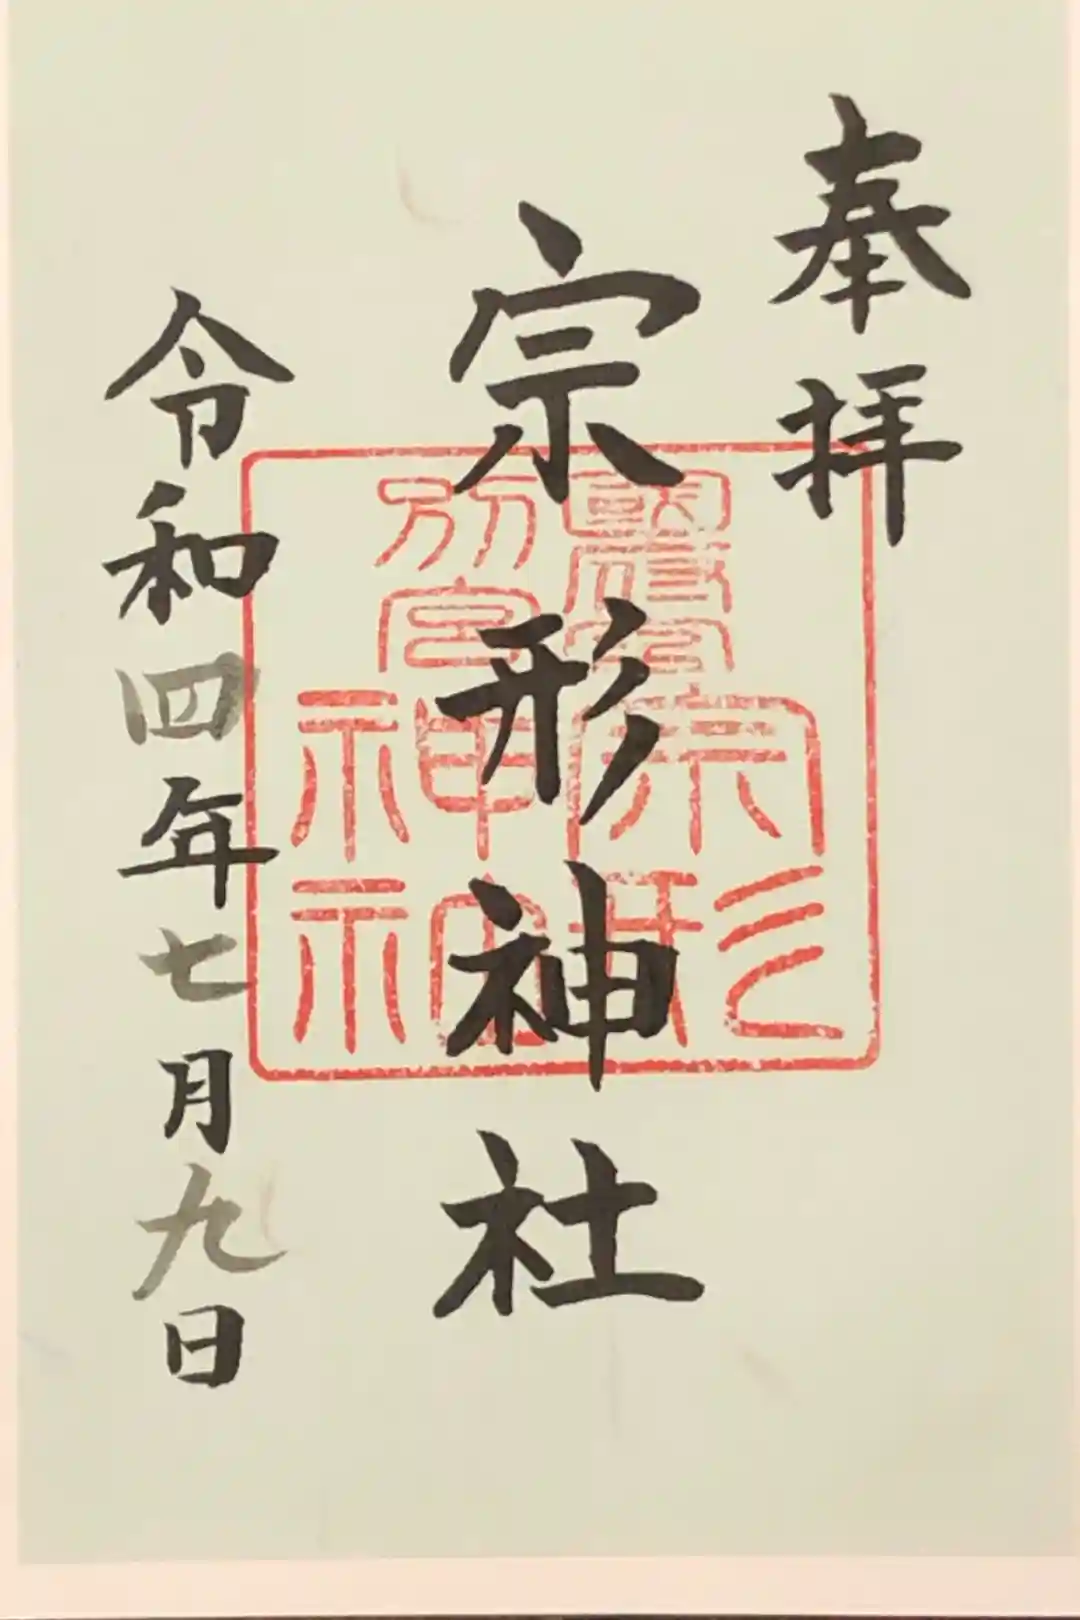 奉拝
宗形神社
令和四年七月九日
別宮
宗形
神社